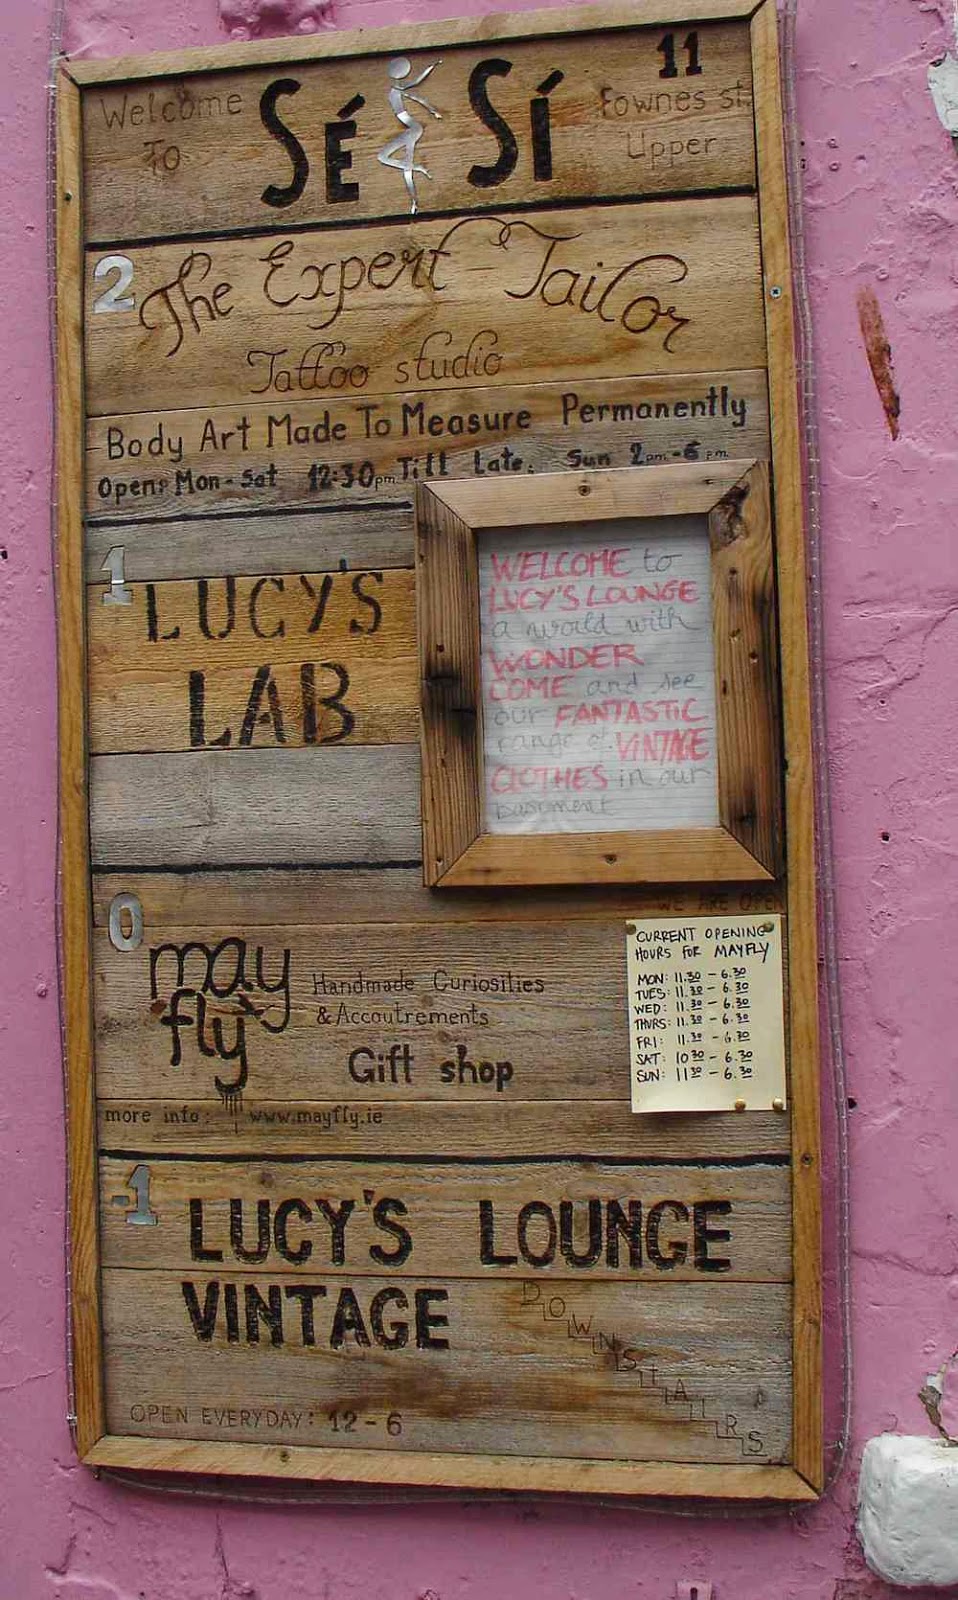 Welcome
To
SÉ SÍ
11
Fownes st.
Upper
2
The Expert Tailor
Tattoo studio
Body Art Made To Measure Permanently
Open: Mon-Sat 12:30pm Till Late. Sun 2pm-6pm
1
LUCY'S
LAB
WELCOME to
LUCY'S LOUNGE
a world with
WONDER
COME and see
our FANTASTIC
range of VINTAGE
CLOTHES in our
basement
WE ARE OPEN
0
may
fly
Handmade Curiosities
& Accoutrements
Gift shop
more info: www.mayfly.ie
CURRENT OPENING
HOURS FOR MAYFLY
MON: 11.30 - 6.30
TUES: 11.30 - 6.30
WED: 11.30 - 6.30
THURS: 11.30 - 6.30
FRI: 11.30 - 6.30
SAT: 10.30 - 6.30
SUN: 11.30 - 6.30
-1
LUCY'S LOUNGE
VINTAGE
DOWNSTAIRS
OPEN EVERYDAY: 12-6